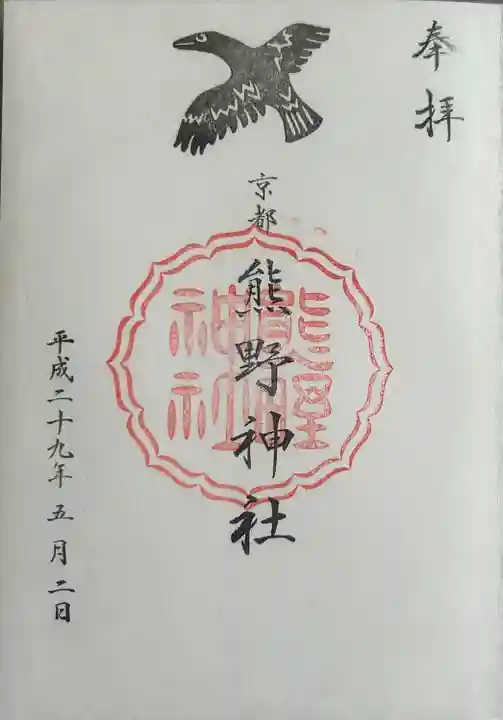 奉拝
京都
熊野神社
熊野
神社
平成二十九年五月二日